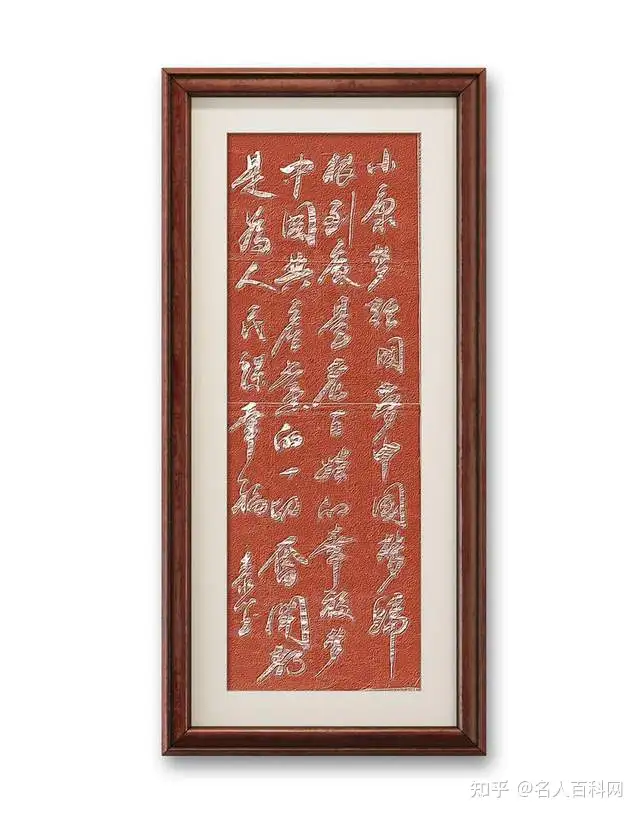 小康梦强国梦中国梦归
根到底是老百姓的幸福梦
中国共产党的一切奋鬥都
是为人民谋幸福
知乎 @名人百科网